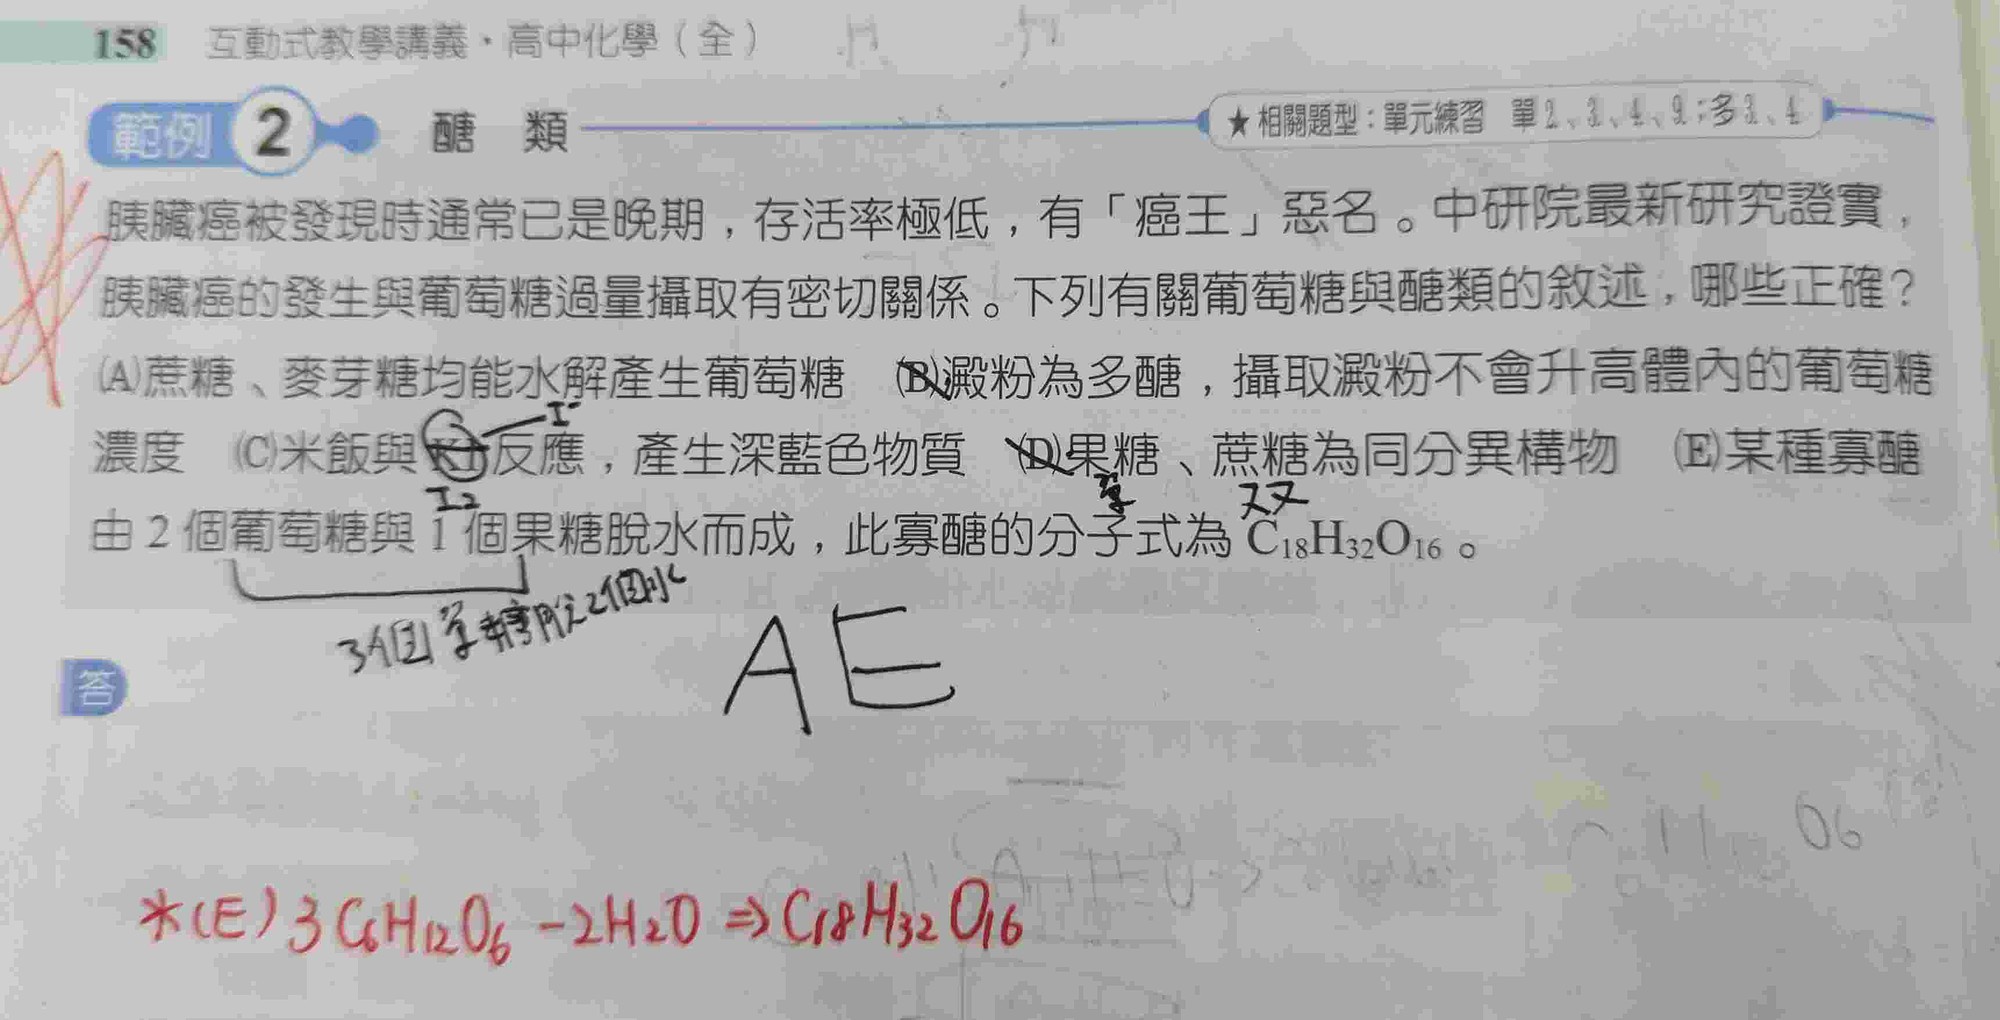 158 互動式教學講義・高中化學（全）
範例 2 醣類
★相關題型：單元練習 單2、3、4、9；多3、4
胰臟癌被發現時通常已是晚期，存活率極低，有「癌王」惡名。中研院最新研究證實，
胰臟癌的發生與葡萄糖過量攝取有密切關係。下列有關葡萄糖與醣類的敘述，哪些正確？
(A)蔗糖、麥芽糖均能水解產生葡萄糖 (B)澱粉為多醣，攝取澱粉不會升高體內的葡萄糖
I⁻
濃度 (C)米飯與KI反應，產生深藍色物質 (D)果糖、蔗糖為同分異構物 (E)某種寡醣
I2 單 双
由2個葡萄糖與1個果糖脫水而成，此寡醣的分子式為C₁₈H₃₂O₁₆。
3個單糖脫2個水
AE
答
06
*(E) 3C₆H₁₂O₆ -2H₂O ⇒ C₁₈H₃₂O₁₆